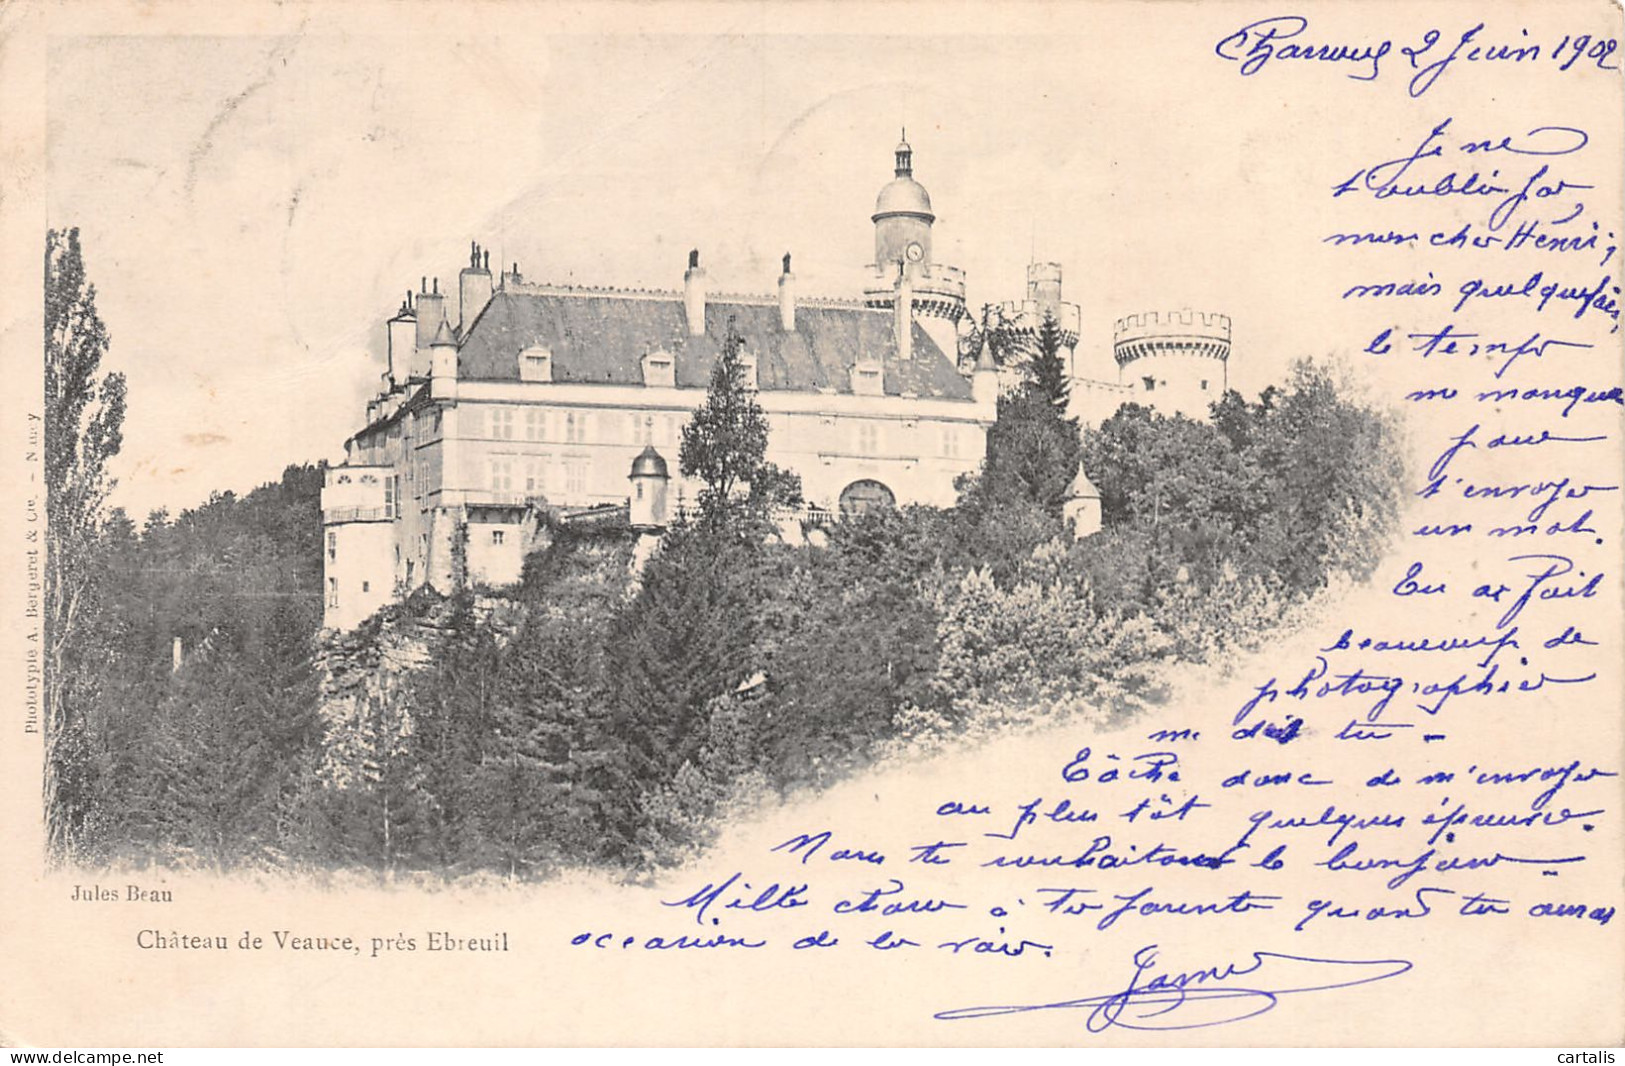 Charroux 2 Juin 1902
Je ne
t'oublie pas
mon cher Henri,
mais quelquefois
le temps
me manque
pour
t'envoyer
un mot.
Tu as fait
beaucoup de
photographies
me dis tu -
Tâche donc de m'envoyer
au plus tôt quelques épreuves.
Nous te souhaitons le bonjour -
Mille choses à tes parents quand tu auras
occasion de les voir.
Phototypie A. Bergeret & Cie. - Nancy
Jules Beau
Château de Veauce, près Ebreuil
delcampe.net
cartalis